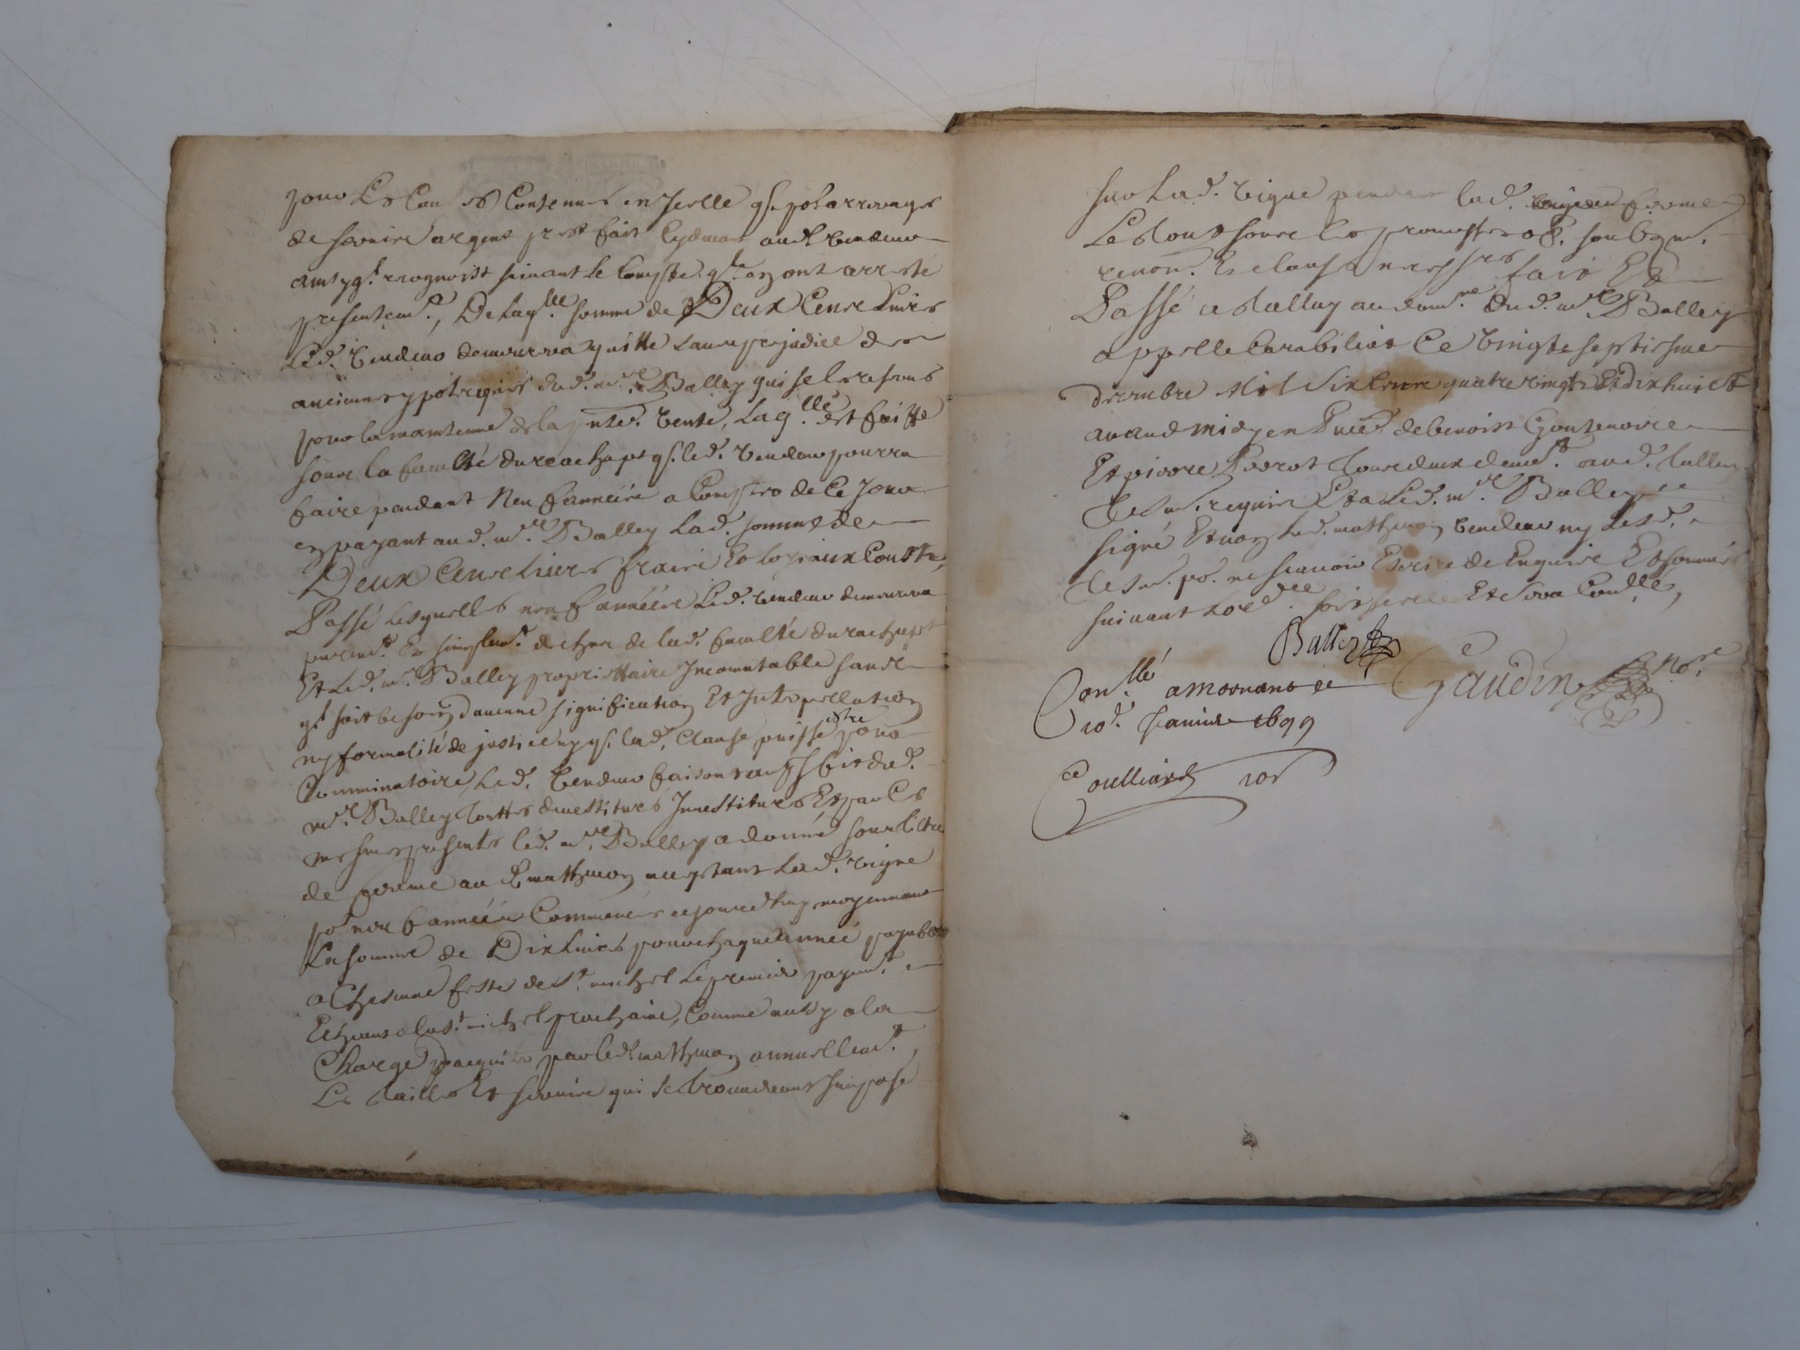 pour les causes contenues en Icelle q. pour arrerages
de servis argent presté fait cydevant aud. vendeur
ainsy q. recognoist suivant le compte q. en ont arresté
presentem.t, De Laq.lle somme de Deux Cens Livres
Led. vendeur demeurera quitte sans prejudice des
anciens ypoteques dud. m.re Balley qui se les reserve
pour la maintenue de la p.nte vente, Laq.lle est faitte
soubs la faculté du reachapt q. led. vendeur pourra
faire pendant Neuf années a Compter de Ce Jour
en payant aud. m.re Balley Lad. somme de
Deux Cens Livres fraix Et loyaux Cousts,
Passé Lesquelles neuf années Led. vendeur demeurera
purem.t Et simplem.t decheu de lad. faculté du rachapt
Et Led. m.re Balley proprietaire Incomutable sans
q. soit besoing d'aucune signification Et Interpellation
ny formalité de justice ny q. lad. Clause puisse estre pour
Comminatoire, Led. vendeur faisant au proffit dud.
m.re Balley touttes devestitures Investitures Et par Ces
mesmes presentes led. m.re Balley a donné soubs tiltre
de ferme aud. mathieu acceptant Lad. vigne
p.r neuf années Commencées ce jourd'huy moyennant
La somme de Dix Livres pour chaque année payable
a Chescune feste de S.t michel Le premier payem.t
Echeant a la S.t michel prochaine, Comme aussy a la
Charge d'acquiter par led. mathieu annuellem.t
Les tailles Et servis qui se trouveront Imposé
sur Lad. vigne pendant lad. ferme
Le tout soubs les promesses ob. soub.
renon. Et clauses necess.res fait Et
Passé a Talluy au dom.re dud. m.re Balley
appellé Carabiliat Ce vingt septiesme
decembre Mil Six Cens quatre vingts Et dix huict
avant midy en P.nce de benoist
Et pierre Perrot tous deux demeu.ts aud. Talluy
tes. requis Et a Led. m.re Balley
signé Et non Led. mathieu vendeur ny Lesd.
tes. po. ne scavoir Escrire de Enquis Et sommés
suivant Lord.ce soit scellé Et sera Con.llé,
Balley
Gaudin No.re
Con.llé a mornant ce
10.e Janvier 1699